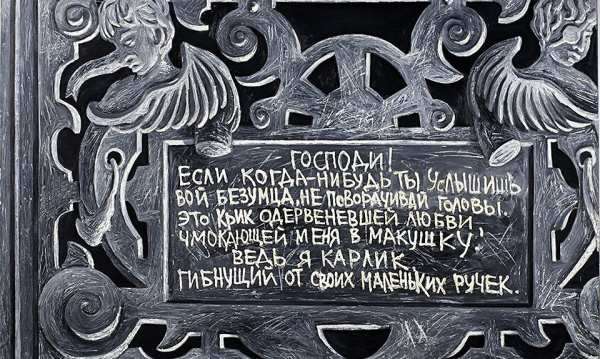 ГОСПОДИ!
ЕСЛИ КОГДА-НИБУДЬ ТЫ УСЛЫШИШЬ
ВОЙ БЕЗУМЦА, НЕ ПОВОРАЧИВАЙ ГОЛОВЫ.
ЭТО КРИК ОДЕРВЕНЕВШЕЙ ЛЮБВИ
ЧМОКАЮЩЕЙ МЕНЯ В МАКУШКУ!
ВЕДЬ Я КАРЛИК
ГИБНУЩИЙ ОТ СВОИХ МАЛЕНЬКИХ РУЧЕК.